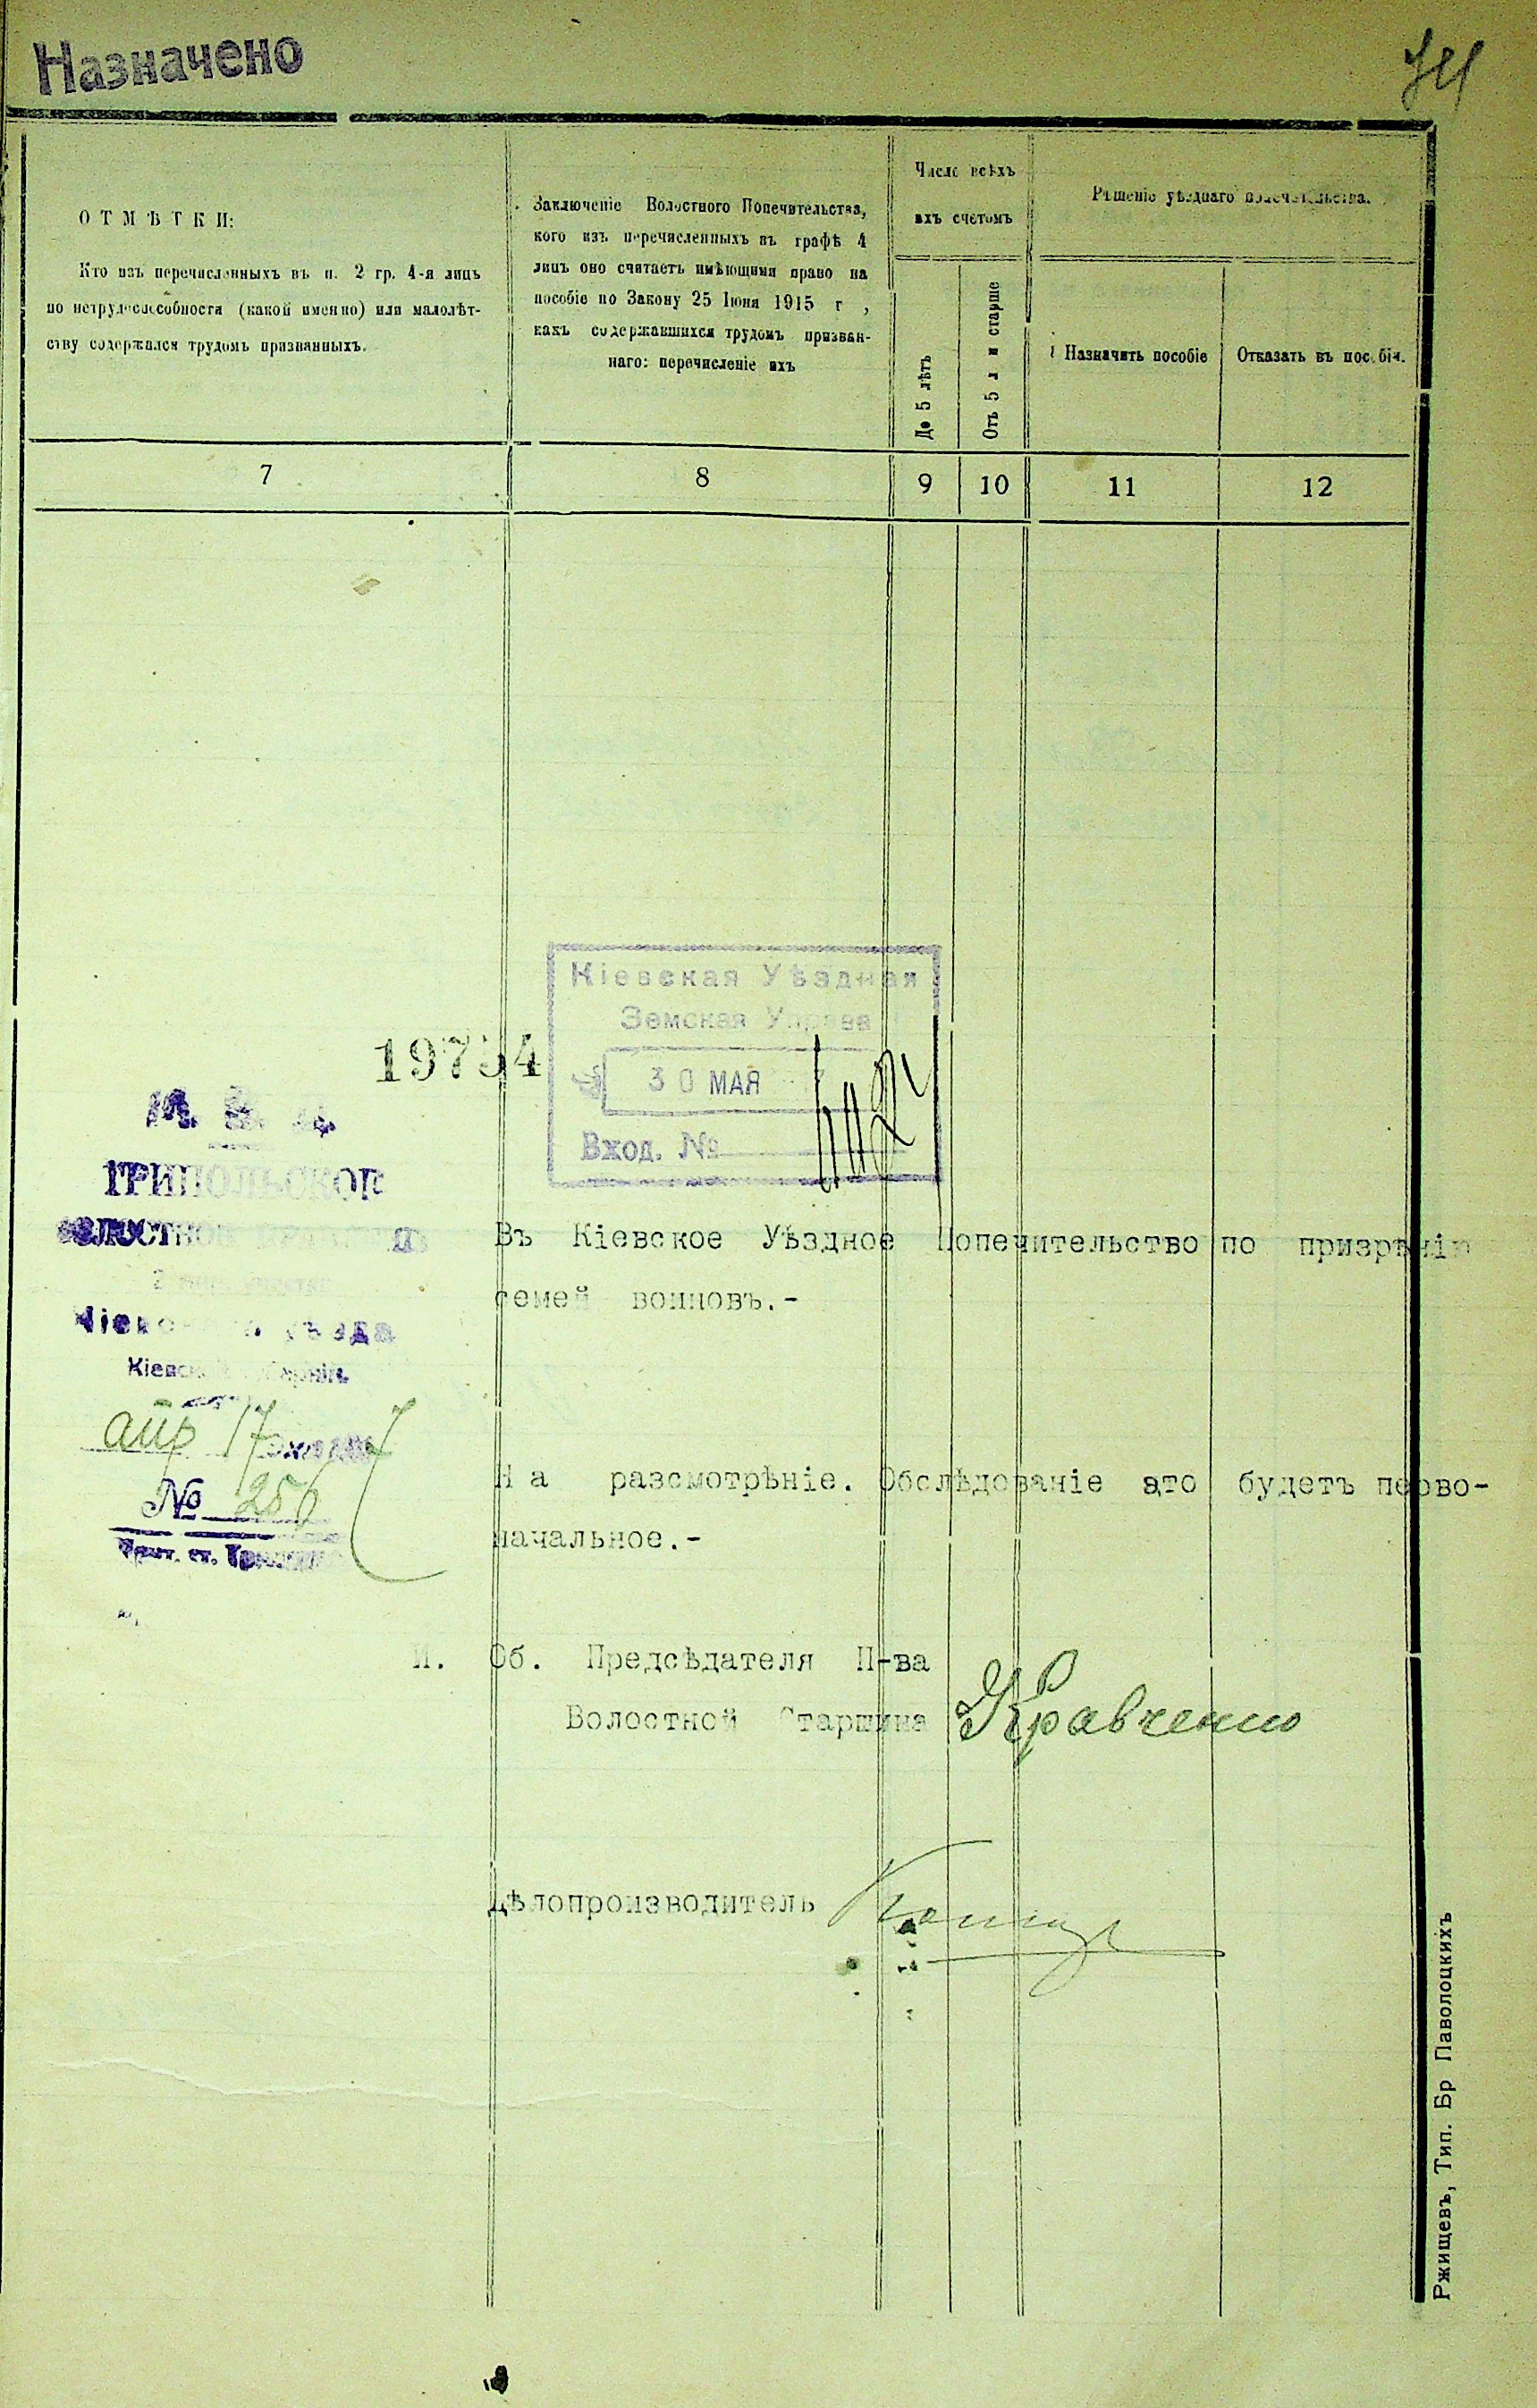 Назначено
ОТМѢТКИ:
Кто изъ перечисленныхъ въ п. 2 гр. 4-я лицъ
по нетрудоспособности (какой именно) или малолѣт-
ству содержался трудомъ призванныхъ.
Заключеніе Волостного Попечительства,
кого изъ перечисленныхъ въ графѣ 4
лицъ оно считаетъ имѣющими право на
пособіе по Закону 25 Іюня 1915 г ,
какъ содержавшихся трудомъ призван-
наго: перечисленіе ихъ
Число всѣхъ
ихъ счетомъ
До 5 лѣтъ
Отъ 5 л и старше
Рѣшеніе уѣзднаго попечительства.
Назначить пособіе
Отказать въ пособіи.
7 8 9 10 11 12
Кіевская Уѣздная
Земская Управа
30 МАЯ
Вход. №
19754
М. В. Д.
ТРИПОЛЬСКОЕ
ВОЛОСТНОЕ
Кіевскаго уѣзда
Кіевской губерніи
апр 17
№ 256
Въ Кіевское Уѣздное Попечительство по призрѣнію
семей воиновъ.-
На разсмотрѣніе. Обслѣдованіе это будетъ перво-
начальное.-
И. Об. Предсѣдателя П-ва
Волостной Старшина Кравченко
Дѣлопроизводитель
Ржищевъ, Тип. Бр Паволоцкихъ